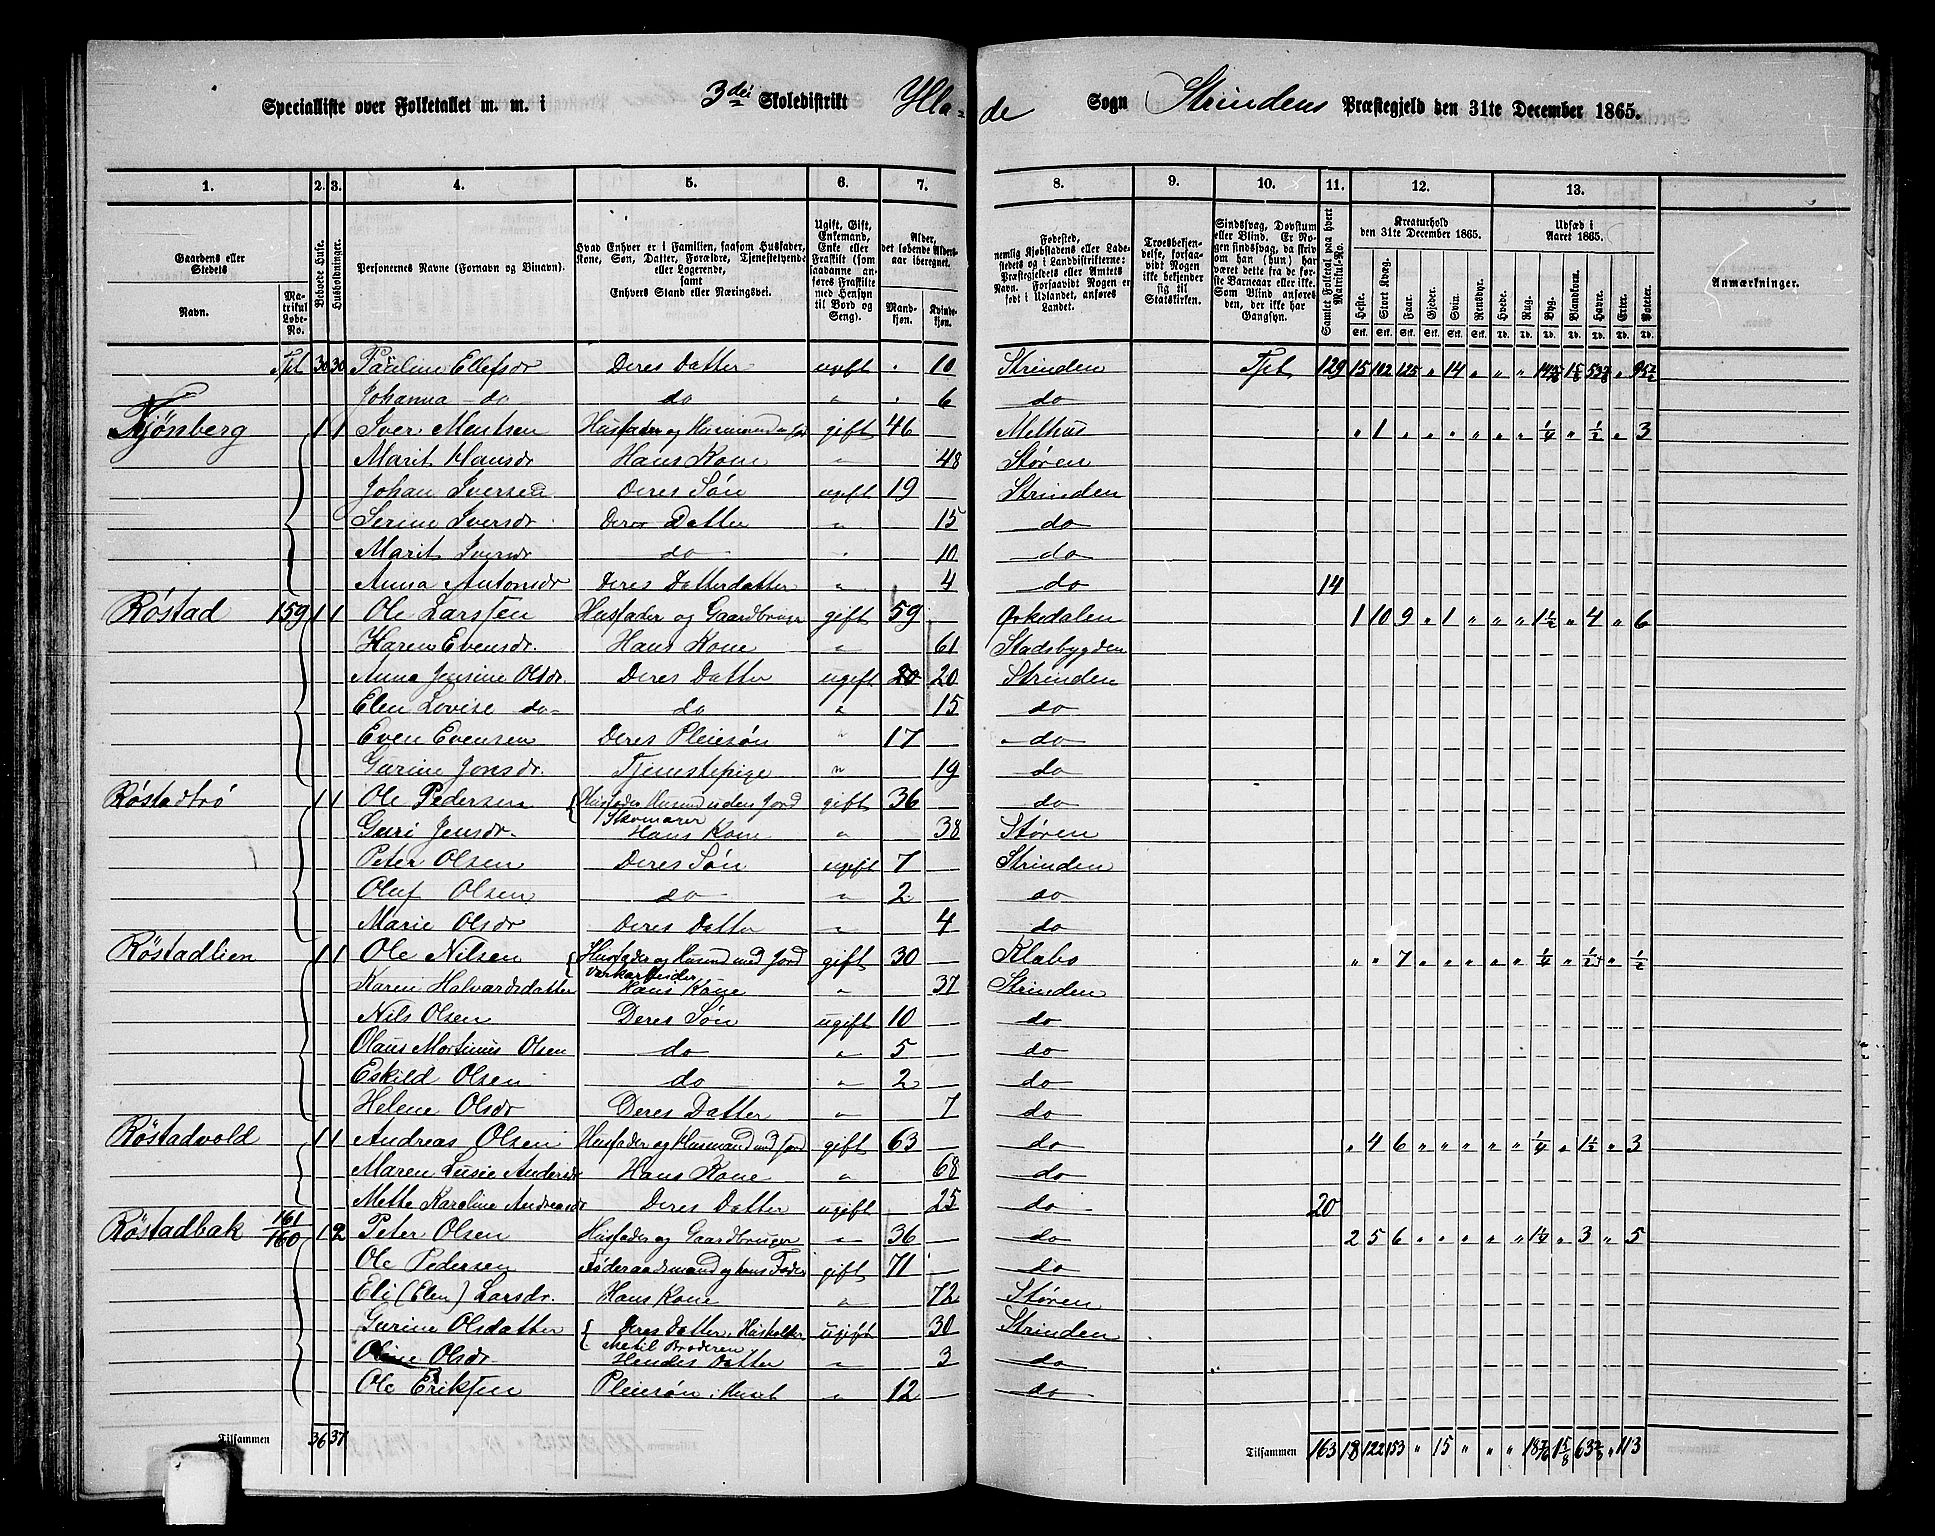 Specialliste over Folketallet m. m. i 3die Skoledistrikt Hla-de Sogn Strindens Præstegjeld den 31te December 1865.
1. 2. 3. 4. 5. 6. 7. 8. 9. 10. 11. 12. 13.
Gaardens eller Stedets
Navn. Matrikul Løbe-No.
Beboede Huse.
Husholdninger.
Personernes Navne (Fornavn og Tilnavn).
Hvad Enhver er i Familien, saasom Husfader, Kone, Søn, Datter, Forældre, Tjenestetyende eller Logerende, samt Enhvers Stand eller Næringsvei.
Ugift, Gift, Enkemand, Enke eller Fraskilt (som saadanne anføres Fraskilte med Hensyn til Bord og Seng).
Alder, det løbende Alders-aar iberegnet.
Mandkjøn. Kvindekjøn.
Fødested, nemlig Kjøbstadens eller Ladestedets og i Landdistrikterne: Præstegjeldets eller Amtets Navn. Forsaavidt Nogen er født i Udlandet, anføres Landet.
Troesbekjendelse, forsaavidt Nogen ikke bekjender sig til Statskirken.
Sindssvag, Døvstum eller Blind. Er Nogen sindssvag, da skrives om han (hun) har været dette fra de første Barneaar eller ikke. Som Blind anføres, der ikke har Gangsyn.
Samlet Folketal paa hvert Matrikul-No.
Kreaturhold den 31te December 1865.
Heste. Stort Kvæg. Faar. Gjeder. Svin. Rensdyr.
Udsæd i Aaret 1865.
Hvede. Rug. Byg. Blandkorn. Havre. Erter. Poteter.
Anmærkninger.
Tpt 30 30 Pauline Ellefsdr Deres Datter ugift 10 Strinden Tpt 129 15 102 125 " 14 " " "
Johanna do do " 6 do
Tjønberg 1 1 Iver Mentsen Husfader og Husmand m Jord gift 46 Melhus " 1 " " " " " " 1/4 " 1/2 " 3
Marit Hansdr Hans Kone " 48 Støren
Johan Iversen Deres Søn ugift 19 Strinden
Serine Iversdr Deres Datter " 15 do
Marit Iversdr do " 10 do
Anna Antonsdr Deres Datterdatter " 4 do 14
Röstad 159 1 1 Ole Larssen Husfader og Gaardbruger gift 59 Orkedalen 1 10 9 " 1 " " " 1 1/2 " 4 " 6
Karen Evensdr. Hans Kone " 61 Stadsbygden
Anna Jensine Olsdr. Deres Datter ugift 20 20 Strinden
Elen Lovise do do " 15 do
Even Evensen Deres Pleiesøn " 17 do
Gurine Jonsdr. Tjenestepige " 19 do
Röstadtrö 1 1 Ole Pedersen Husfader Husmd uden Jord Skomager gift 36 do
Guri Jensdr. Hans Kone " 38 Støren
Peter Olsen Deres Søn ugift 7 Strinden
Oluf Olsen do " 2 do
Marie Olsdr Deres Datter " 4 do
Röstadlien 1 1 Ole Nilsen Husfader og Husmd med Jord Værkarbeider gift 30 Klæbo " " 7 " " " " " 1/4 " 1/2 " 1/2
Karen Halvardsdatter Hans Kone " 37 Strinden
Nils Olsen Deres Søn ugift 10 do
Olaus Mortinus Olsen do " 5 do
Eskild Olsen do " 2 do
Helene Olsdr Deres Datter " 7 do
Röstadvold 1 1 Andreas Olsen Husfader og Husmand med Jord gift 63 do " 4 6 " " " " " 1/4 " 1 1/2 " 3
Maren Lusie Andersdr Hans Kone " 68 do
Mette Karoline Andreasdr Deres Datter ugift 25 do 20
Röstadbak 161/160 1 2 Peter Olsen Husfader og Gaardbruger " 36 do 2 5 6 " " " " " 1 1/4 " 3 " 5
Ole Pedersen Føderaadsmand og hans Fader gift 71 do
Eli (Elen) Larsdr. Hans Kone " 72 Støren
Gurine Olsdatter Deres Datter, Husholder ugift 30 Strinden
Oline Olsdr Hendes Datter " 3 do
Ole Eriksen Pleiesøn i Huset " 12 do
Tilsammen 36 37
Tilsammen 163 18 122 153 " 15 " " " " 113